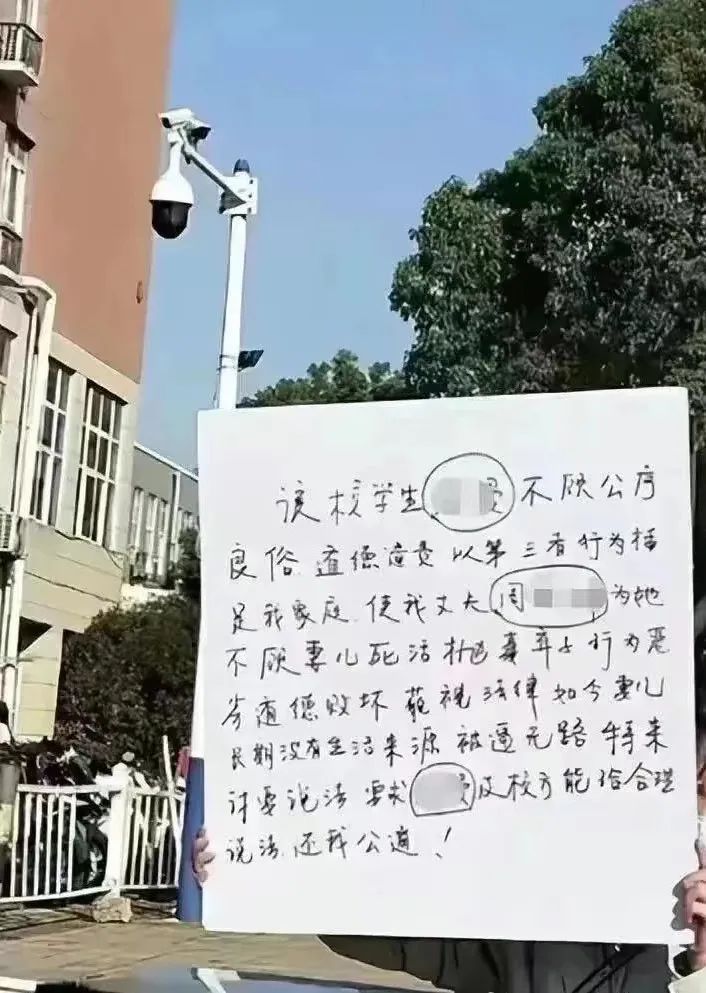 该校学生 不顾公序
良俗.道德沦丧以第三者行为插
足我家庭.使我丈夫 周 为她
不顾妻儿死活抛妻弃子行为恶
劣道德败坏藐视法律如今妻儿
长期没有生活来源被逼无路特来
讨要说法要求 及校方能给合理
说法.还我公道!